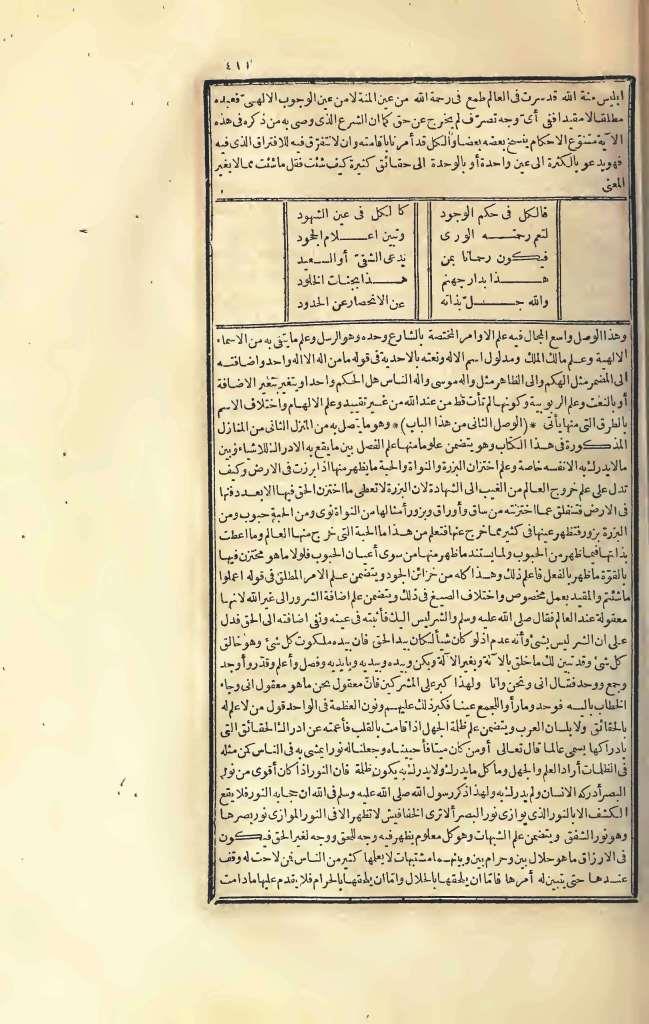 ٤١١
ابليس منة الله قد سرت فى العالم طمع فى رحمة الله من عين المنة لا من عين الوجوب الالهى فعبده
مطلقا لا مقيدا ففى أى وجه تصرف لم يخرج عن حق كما ان الشرع الذى وصى به من ذكره فى هذه
الآية متنوع الاحكام ينسخ بعضه بعضا والكل قد أمرنا باقامته وان لا نتفرق فيه للافتراق الذى فيه
فهو يدعو بالكثرة الى عين واحدة أو بالوحدة الى حقائق كثيرة كيف شئت فقل ما شئت مما لا يغير
المعنى
فالكل فى حكم الوجود كالكل فى عين الشهود
لتعم رحمته الورى وتبين اعلام الجحود
فيكون رحمانا بمن يدعى الشقى أو السعيد
هذا بدار جهنم هذا بجنات الخلود
والله جل بذاته عن الانحصار عن الحدود
وهذا الوصل واسع المجال فيه علم الاوامر المختصة بالشارع وحده وهو الرسل وعلم ما يتقى به من الاسماء
الالهية وعلم مالك الملك ومدلول اسم الاله ونعته بالاحدية فى قوله ما من اله الا اله واحد واضافته
الى المضمر مثل الهكم والى الظاهر مثل واله موسى واله الناس هل الحكم واحد او يتغير بتغير الاضافة
أو بالنعت وعلم الربوبية وكونها لم تأت قط من عند الله من غير تقييد وعلم الالهام واختلاف الاسم
بالطرق التى منها يأتى * (الوصل الثانى من هذا الباب) * وهو ما يتصل به من المنزل الثانى من المنازل
المذكورة فى هذا الكتاب وهو يتضمن علوما منها علم الفصل بين ما يقع به الادراك للاشياء وبين
ما لا يدرك به الا نفسه خاصة وعلم اختزان البزرة والنواة والحبة ما يظهر منها اذا بزرت فى الارض وكيف
تدل على علم خروج العالم من الغيب الى الشهادة لان البزرة لا تعطى ما اختزن الحق فيها الا بعد دفنها
فى الارض فتنفلق عما اختزنته من ساق وأوراق وبزور أمثالها من النواة نوى ومن الحبة حبوب ومن
البزرة بزور فتظهر عينها فى كثير مما خرج عنها فتعلم من هذا ما الحبة التى خرج منها العالم وما اعطت
بذاتها فيما ظهر من الحبوب ولما يستند ما ظهر منها من سوى أعيان الحبوب فلولا ما هو مختزن فيها
بالقوة ما ظهر بالفعل فاعلم ذلك وهذا كله من خزائن الجود ويتضمن علم الامر المطلق فى قوله اعملوا
ما شئتم والمقيد بعمل مخصوص واختلاف الصيغ فى ذلك ويتضمن علم اضافة الشرور الى غير الله لانها
معقولة عند العالم فقال صلى الله عليه وسلم والشر ليس اليك فأثبته فى عينه ونفى اضافته الى الحق فدل
على ان الشر ليس بشئ وأنه عدم اذ لو كان شيأ لكان بيد الحق فان بيده ملكوت كل شئ وهو خالق
كل شئ وقد تبين لك ما خلق بالآلة وبغير الآلة وبكن وبيده وبيديه وبايديه وفصل وأعلم وقدر وأوجد
وجمع ووحد فقال انى ونحن وانا ولهذا كبر على المشركين فان معقول نحن ما هو معقول انى وجاء
الخطاب باليه فوحد وما رأوا للجمع عينا فكبر ذلك عليهم ونون العظمة فى الواحد قول من لا علم له
بالحقائق ولا بلسان العرب ويتضمن علم ظلمة الجهل اذا قامت بالقلب فأعمته عن ادراك الحقائق التى
بادراكها يسمى عالما قال تعالى أو من كان ميتا فأحييناه وجعلنا له نورا يمشى به فى الناس كمن مثله
فى الظلمات أراد العلم والجهل وما كل ما يدرك ولا يدرك به يكون ظلمة فان النور اذا كان أقوى من نور
البصر أدركه الانسان ولم يدرك به ولهذا ذكر رسول الله صلى الله عليه وسلم فى الله ان حجابه النور فلا يقع
الكشف الا بالنور الذى يوازى نور البصر ألا ترى الخفافيش لا تظهر الا فى النور الموازى نور بصرها
وهو نور الشفق ويتضمن علم الشبهات وهو كل معلوم يظهر فيه وجه للحق ووجه لغير الحق فيكون
فى الارزاق ما هو حلال بين وحرام بين وبينهما مشتبهات لا يعلمها كثير من الناس فمن لاحت له وقف
عندها حتى يتبين له أمرها فاما ان يلحقها بالحلال واما ان يلحقها بالحرام فلا يقدم عليها ما دامت